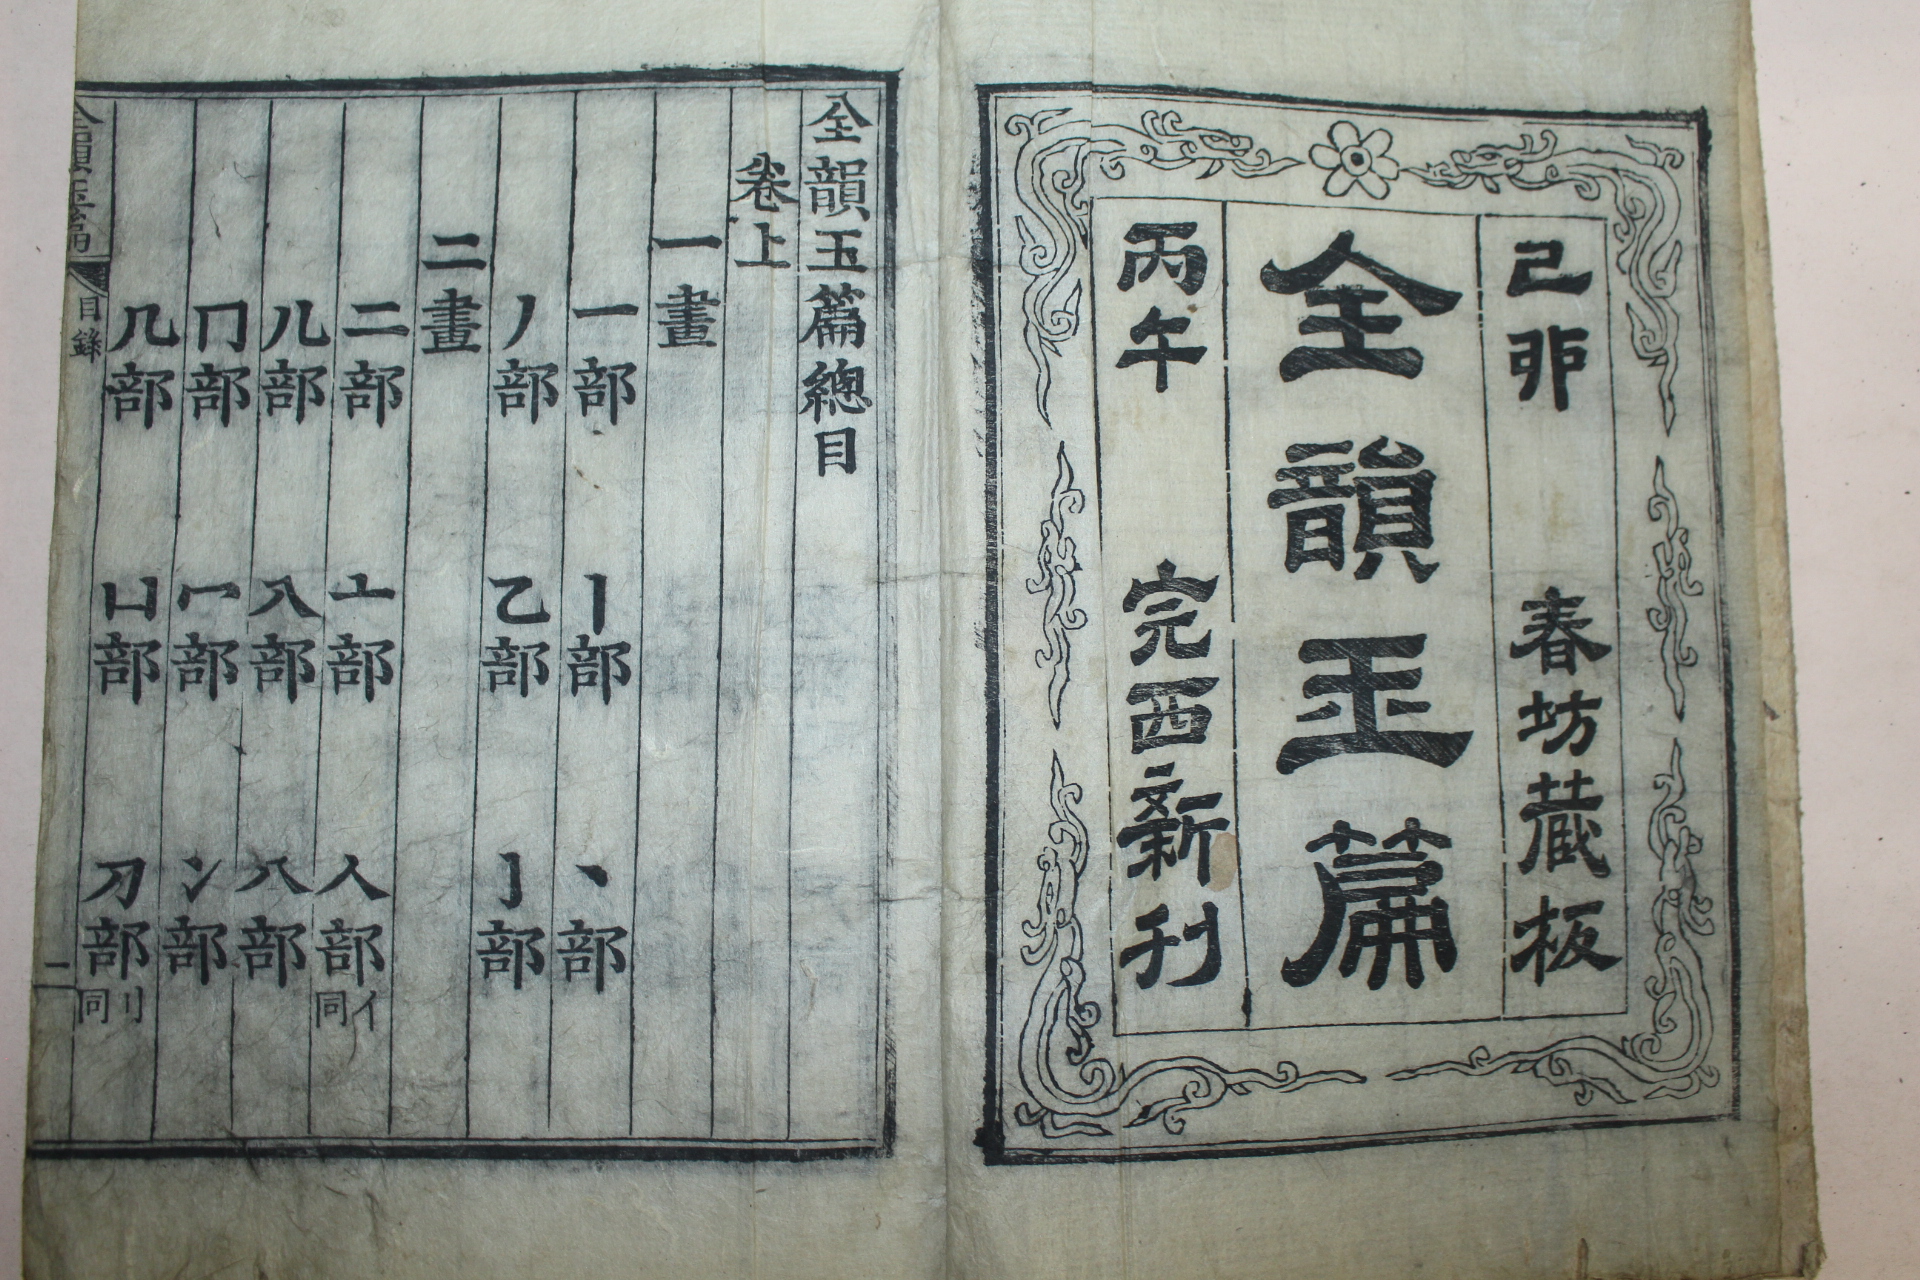 己卯 春坊藏板
全韻玉篇
丙午 完西新刊
全韻玉篇總目
卷上
一畫
一部 丨部 丶部
丿部 乙部 亅部
二畫
二部 亠部 人部 亻同
儿部 入部 八部
冂部 冖部 冫部
几部 凵部 刀部 刂同
全韻玉篇 目錄 一